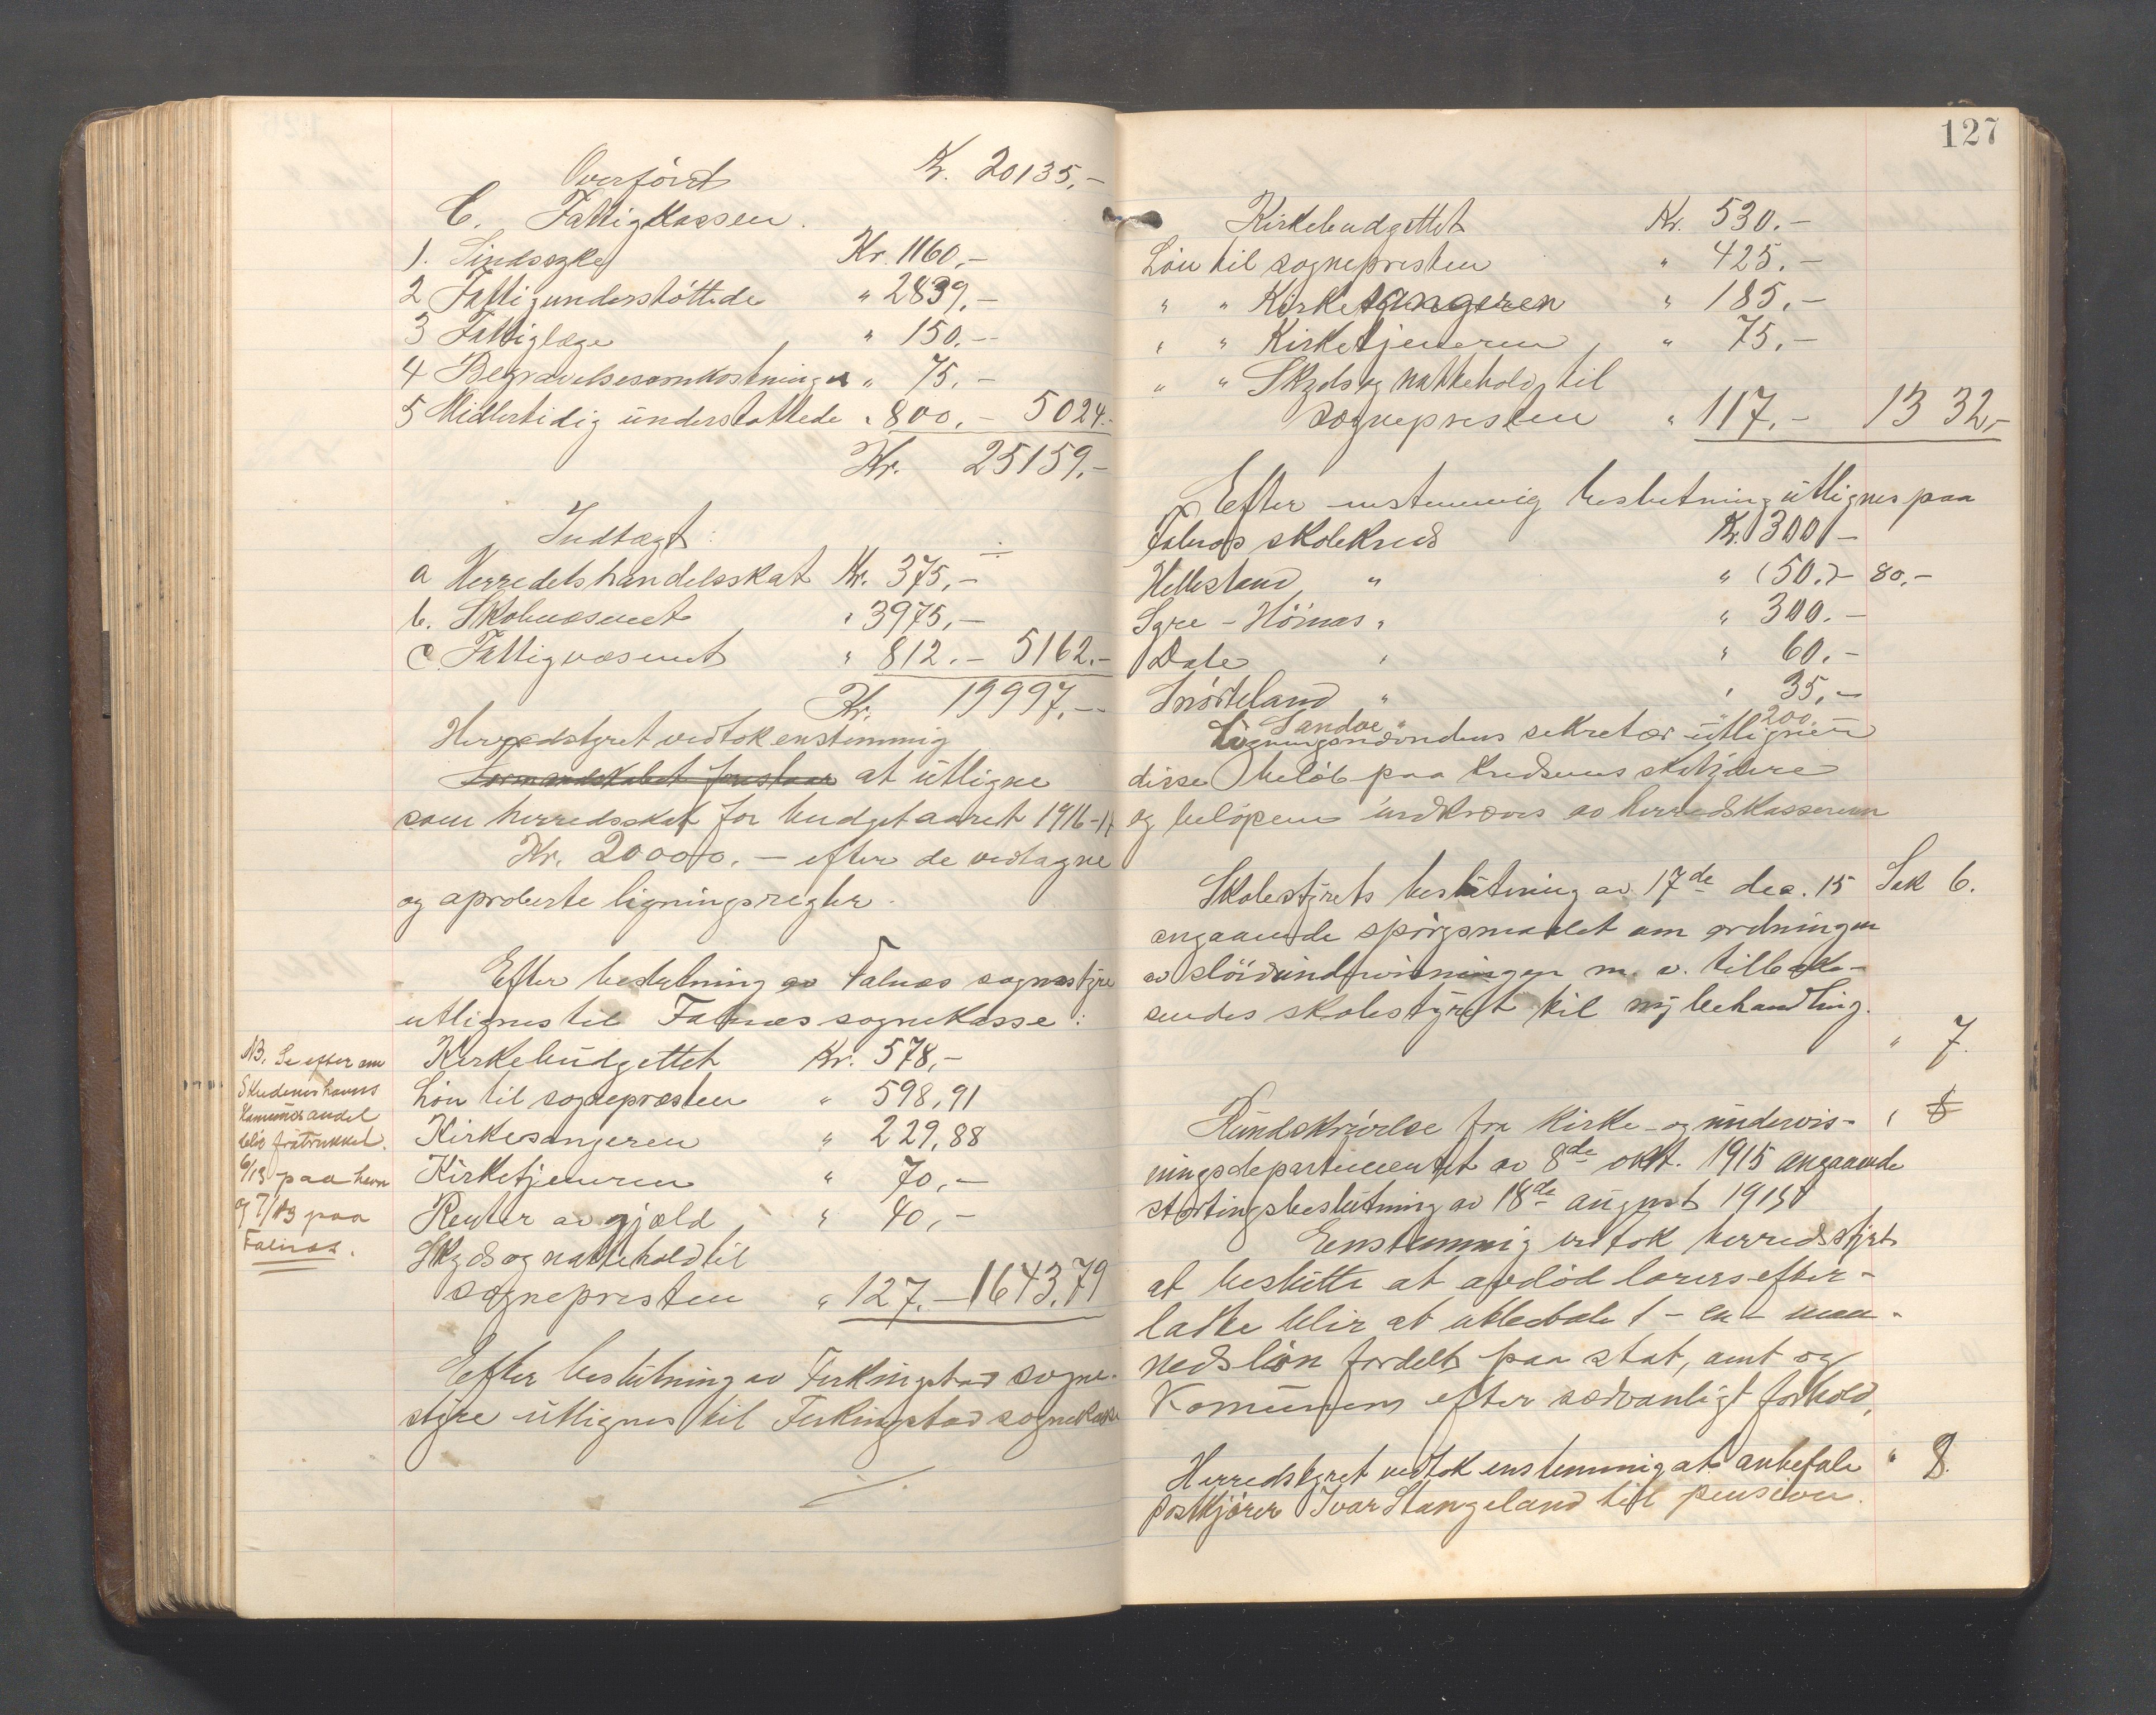 Overført Kr. 20135,-
C. Fattigkassen.
1. Sindssyke Kr. 1160,-
2 Fattigunderstöttede " 2839,-
3 Fattiglæge " 150.-
4 Begravelsesomkostninger " 75,-
5 Midlertidig understøttede " 800,- 5024.-
Kr. 25159,-
Indtægt: ÷
a Herredets handelsskat Kr. 375,-
b. Skolevæsenet " 3975,-
c. Fattigvæsenet " 812.- 5162.-
Kr. 19997,-
Herredstyret vedtok enstemmig
Formandskabet foreslaar at utligne
som herredsskat for budgetaaret 1916-17
Kr. 20000.- efter de vedtagne
og aproberte ligningsregler.
Efter beslutning av Falnæs sognestyre
utlignes til Falnæs sognekasse:
NB. Se efter om
Skudeneshavns
Kommunes andel
blir fratrukket.
6/13 paa havn
og 7/13 paa
Falnæs.
Kirkebudgettet Kr. 578,-
Løn til sognepresten " 598,91
Kirkesangeren " 229,88
Kirketjeneren " 70,-
Renter av gjæld " 40,-
Skyds og natteholdtil
sognepresten " 127.- 1643,79
Efter beslutning av Ferkingstad sogne-
styre utlignes til Ferkingstad sognekasse
127
Kirkebudgettet Kr. 530.-
Løn til sognepresten " 425.-
" " Kirkesangeren " 185,-
" " Kirketjeneren " 75,-
" " Skyds og nattehold til
sognepresten " 117.- 1332,-
Efter enstemmig beslutning utlignes paa
Falnæs skolekreds Kr. 300,-
Hillesland " " (50.)- 80,-
Syre - Höinæs " " 300.-
Dale " " 60.-
Snørteland " " 35,-
Sandve " " 200.
Ligningsnævndens sekretær utligner
disse beløb paa kredsenes skatydere
og beløpene indkræves av herredskassereren
Skolestyrets beslutning av 17de dec. 15 Sak 6.
angaaende spørgsmaalet om ordningen
av slöidundervisningen m. v. tilbake-
sendes skolestyret til ny behandling.
" 7.
Rundskrivelse fra Kirke- og undervis- " 8
ningsdepartementet av 8de okt. 1915 angaaende
stortingsbeslutning av 18de august 1915
Enstemmig vedtok herredsstyret
at beslutte at avdöd lærers efter-
latte blir at utbetale 1 - en - maa-
nedsløn fordelt paa stat, amt og
Komunen efter sædvanligt forhold.
Herredstyret vedtok enstemmig at anbefale " 8.
postkjører Ivar Stangeland til pension.